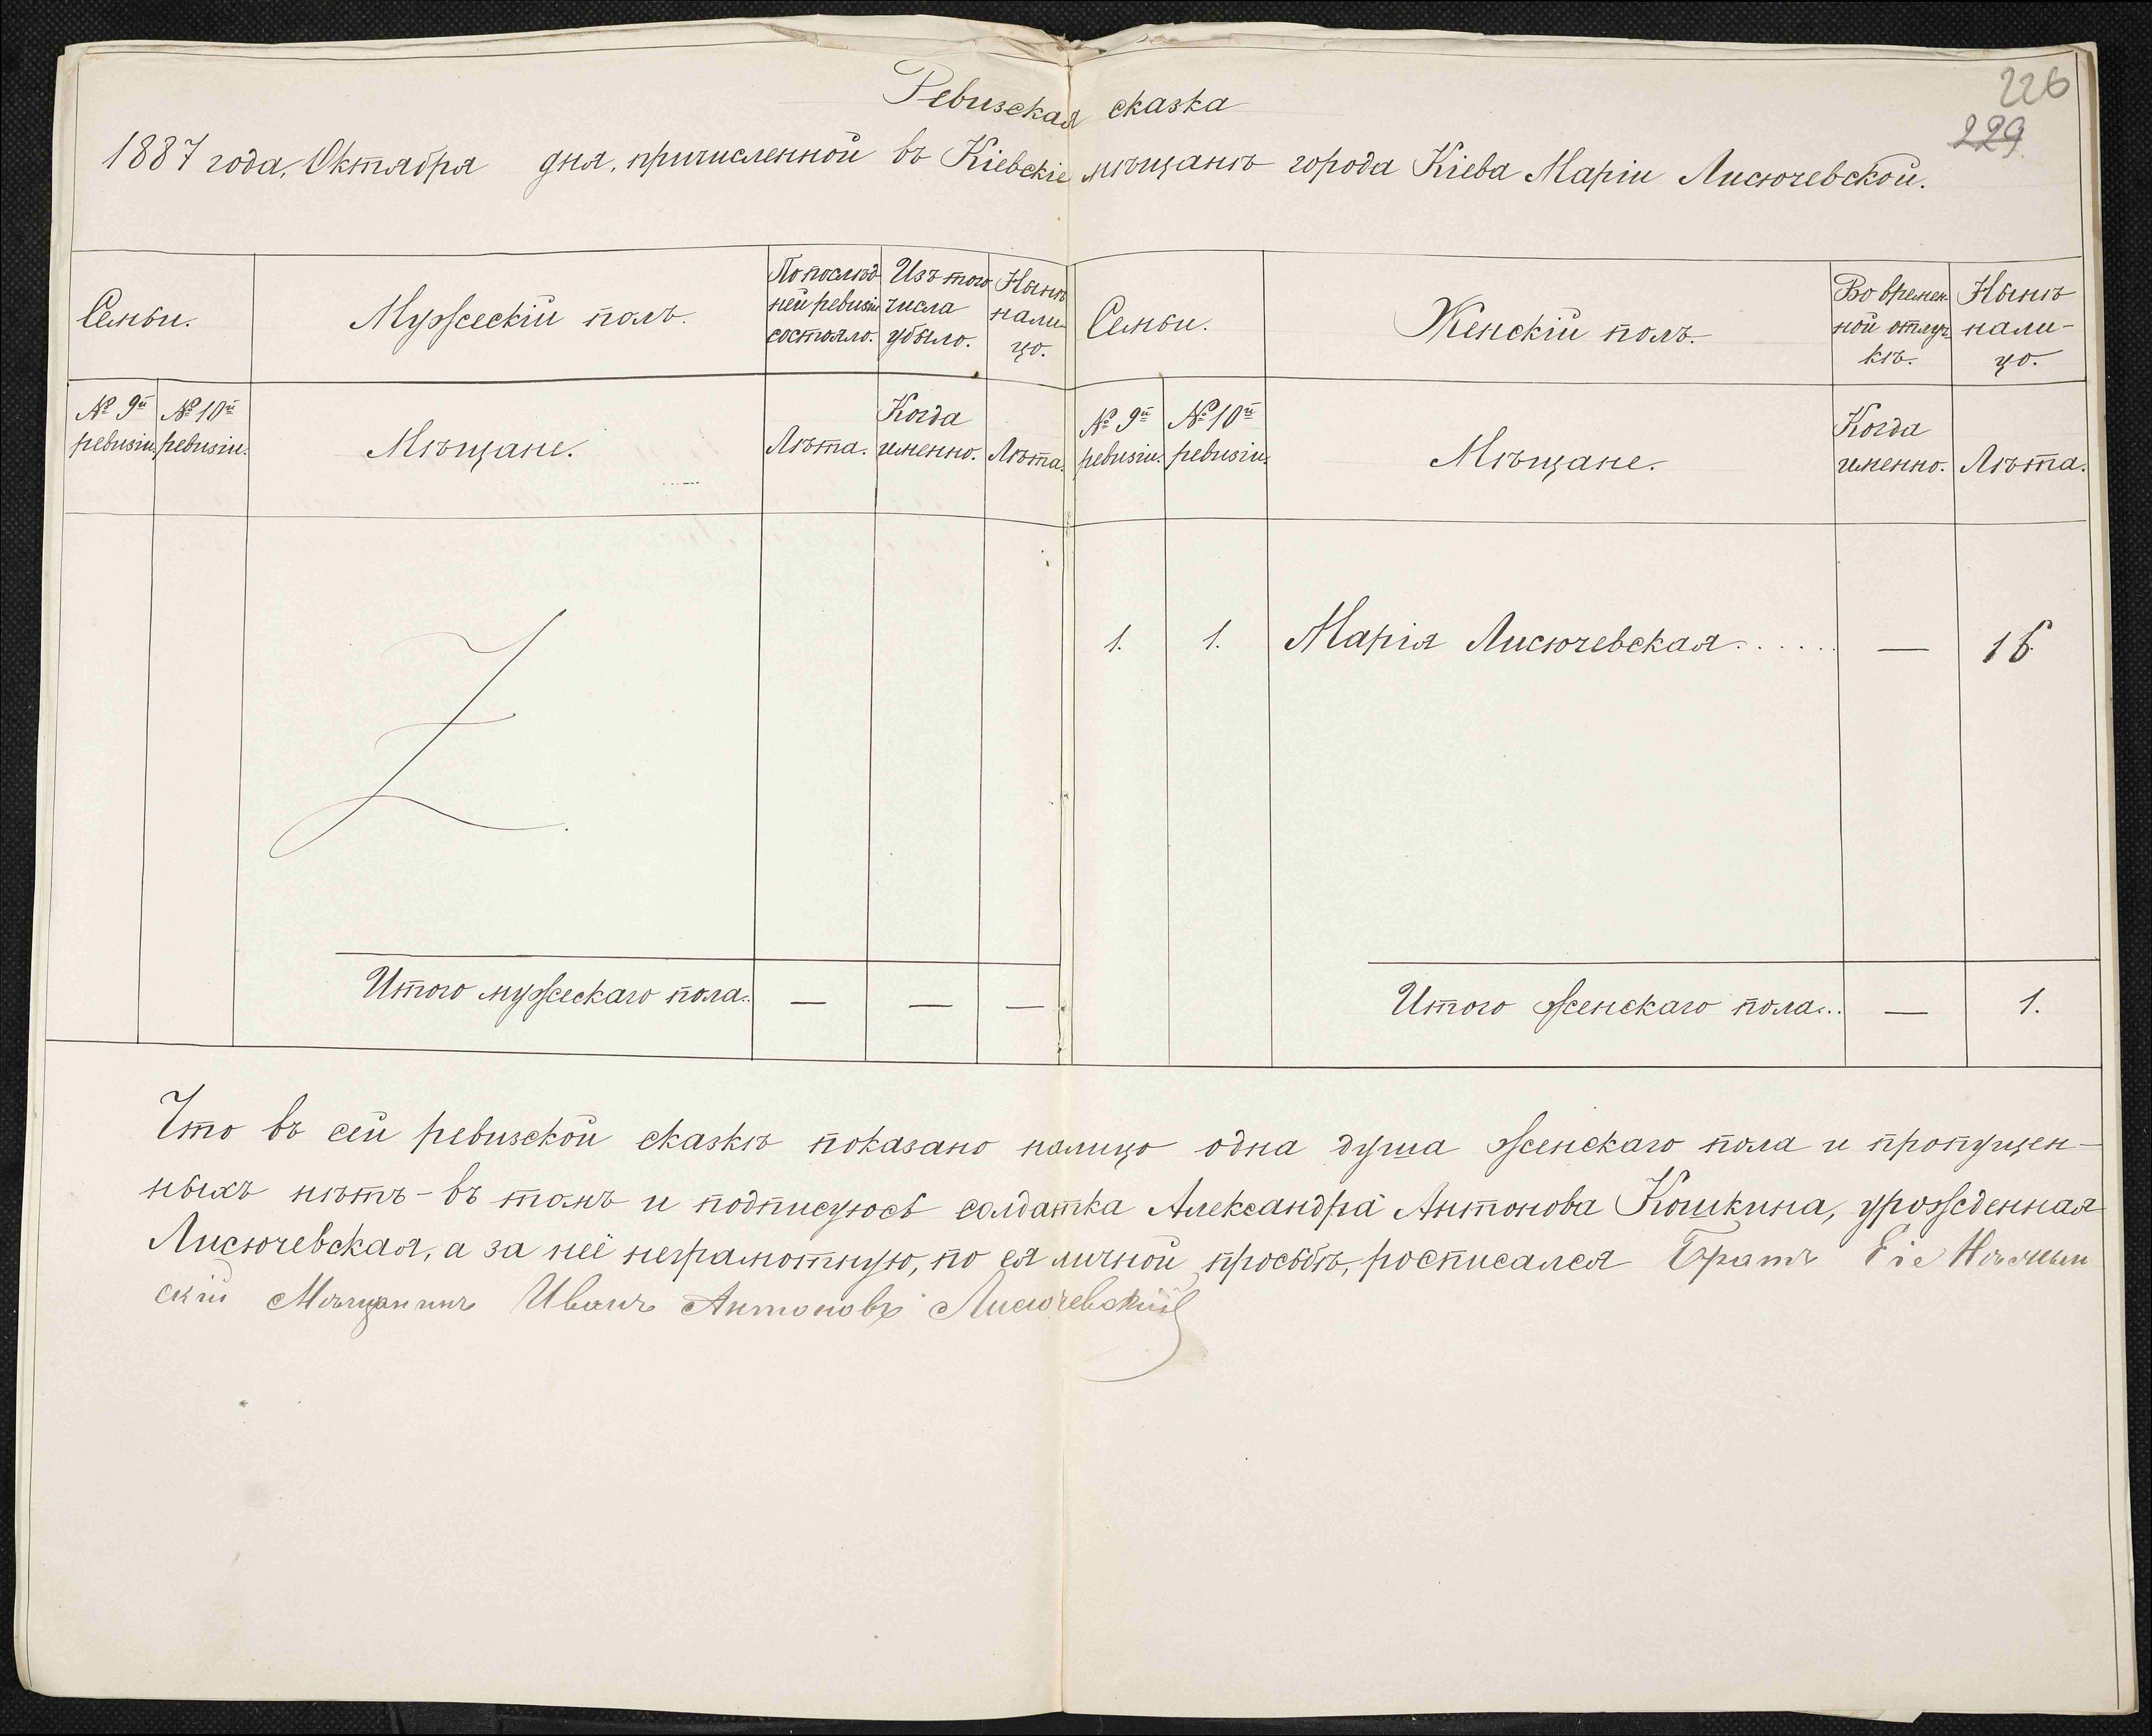 226
229
Ревизская сказка
1887 года, Октября дня, причисленной въ Кіевскіе мѣщанѣ города Кіева Маріи Лисючевской.
Семьи.
Мужескій полъ.
По послѣд-
ней ревизіи
состояло.
Изъ того
числа
убыло.
Нынѣ
нали-
цо.
Семьи.
Женскій полъ.
Во времен-
ной отлуч-
кѣ.
Нынѣ
нали-
цо.
№ 9й
ревизіи.
№ 10й
ревизіи.
Мѣщане.
Лѣта.
Когда
именно.
Лѣта.
№ 9й
ревизіи.
№ 10й
ревизіи.
Мѣщане.
Когда
именно.
Лѣта.
1. 1. Марія Лисючевская...... — 16.
Итого мужескаго пола.. — — —
Итого женскаго пола... — 1.
Что въ сей ревизской сказкѣ показано налицо одна душа женскаго пола и пропущен-
ныхъ нѣтъ - въ томъ и подписуюсь солдатка Александра Антонова Кошкина, урожденная
Лисючевская, а за неё неграмотную, по ея личной просьбѣ, росписался Братъ Еіе
скій Мѣщанинъ Иванъ Антоновъ Лисючевскій